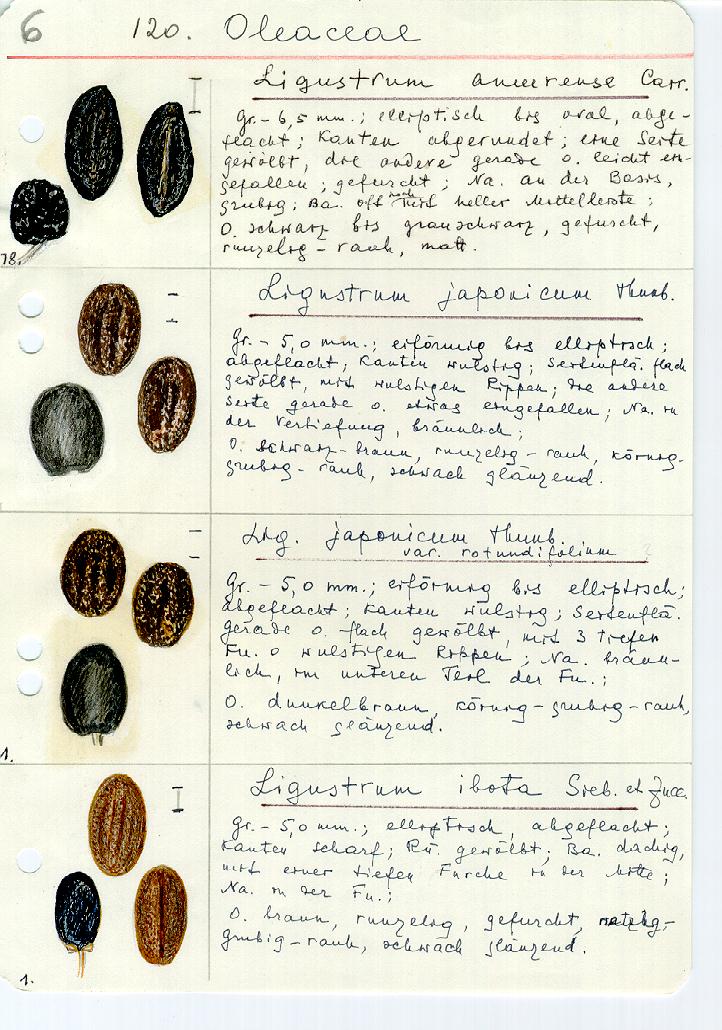 6 120. Oleaceae
Ligustrum amurense Carr.
Gr. - 6,5 mm.; elliptisch bis oval, abge-
flacht; Kanten abgerundet; eine Seite
gewölbt, die andere gerade o. leicht ein-
gefallen; gefurcht; Na. an der Basis,
grubig; Ba. oft noch mit heller Mittelleiste;
O. schwarz bis grauschwarz, gefurcht,
runzelig - rauh, matt.
18.
Ligustrum japonicum Thunb.
Gr. - 5,0 mm.; eiförmig bis elliptisch;
abgeflacht; Kanten wulstig; Seitenflä. flach
gewölbt, mit wulstigen Rippen; die andere
Seite gerade o. etwas eingefallen; Na. in
der Vertiefung, bräunlich;
O. schwarz-braun, runzelig - rauh, körnig-
grubig - rauh, schwach glänzend.
Lig. japonicum Thunb.
var. rotundifolium ?
Gr. - 5,0 mm.; eiförmig bis elliptisch;
abgeflacht; Kanten wulstig; Seitenflä.
gerade o. flach gewölbt, mit 3 tiefen
Fu. o wulstigen Rippen; Na. bräun-
lich, im unteren Teil der Fu.;
O. dunkelbraun, körnig-grubig-rauh,
schwach glänzend.
1.
Ligustrum ibota Sieb. et Zucc.
Gr. - 5,0 mm.; elliptisch, abgeflacht;
Kanten scharf; Rü. gewölbt; Ba. dachig,
mit einer tiefen Furche in der Mitte;
Na. in der Fu.;
O. braun, runzelig, gefurcht, netzig-
grubig-rauh, schwach glänzend.
1.